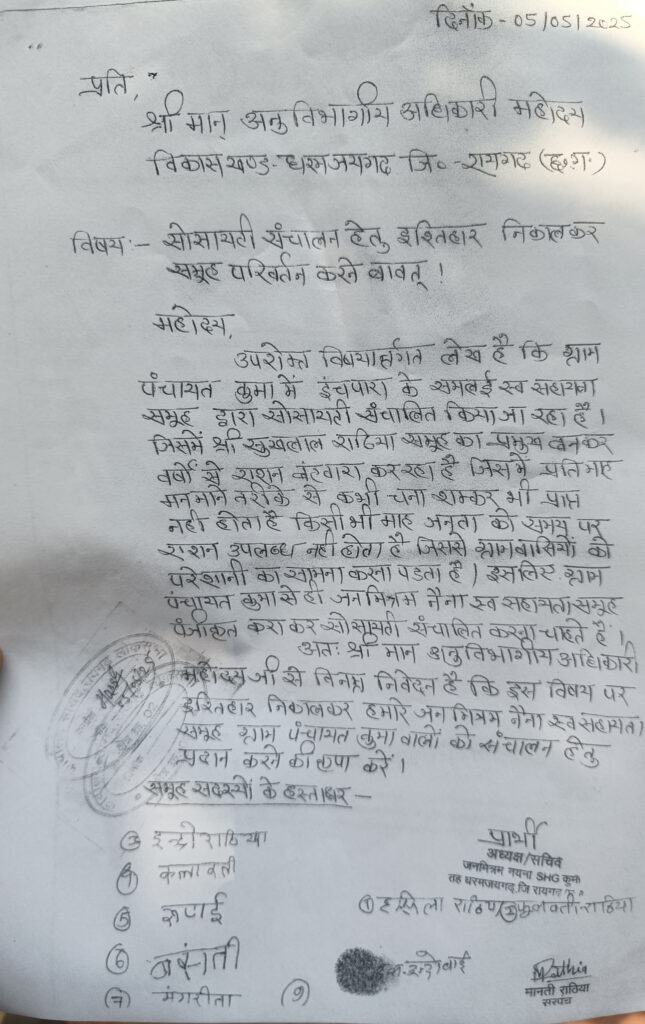 दिनाँक - 05/05/2025
प्रति,
श्री मान् अनुविभागीय अधिकारी महोदय
विकासखण्ड - धरमजयगढ़ जि० - रायगढ़ (छ.ग.)
विषय :- सोसायटी संचालन हेतु इश्तिहार निकालकर
समूह परिवर्तन करने बावत् !
महोदय,
उपरोक्त विषयार्न्तगत लेख है कि ग्राम
पंचायत कुमा में इंचपारा के समलाई स्व सहायता
समूह द्वारा सोसायटी संचालित किया जा रहा है ।
जिसमें श्री सुखलाल राठिया समूह का प्रमुख बनकर
वर्षो से राशन बंटवारा कर रहा है जिसमें प्रति माह
मनमाने तरीके से कभी चना शक्कर भी प्राप्त
नही होता है किसी भी माह जनता को समय पर
राशन उपलब्ध नही होता है जिससे ग्रामवासियों को
परेशानी का सामना करना पडता है । इसलिए ग्राम
पंचायत कुमा से ही जनमित्रम नैना स्व सहायता समूह
पंजीकृत करा कर सोसायटी संचालित करना चाहते है ।
अतः श्री मान अनुविभागीय अधिकारी
महोदय जी से विनम्र निवेदन है कि इस विषय पर
इश्तिहार निकालकर हमारे जनमित्रम नैना स्व सहायता
समूह ग्राम पंचायत कुमा वालों को संचालन हेतु
प्रदान करने की कृपा करें ।
समूह सदस्यों के हस्ताक्षर —
प्रार्थी
अध्यक्ष/सचिव
जनमित्रम नयना SHG कुमा
तह धरमजयगढ़, जि रायगढ़
① हसिला राठिया ② फुलवती राठिया
③ इन्द्रो राठिया
④ कलावती
⑤ रुपाई
⑥ बसंती
⑦ मंगरीता
(9)
Rathia
मानती राठिया
सरपंच